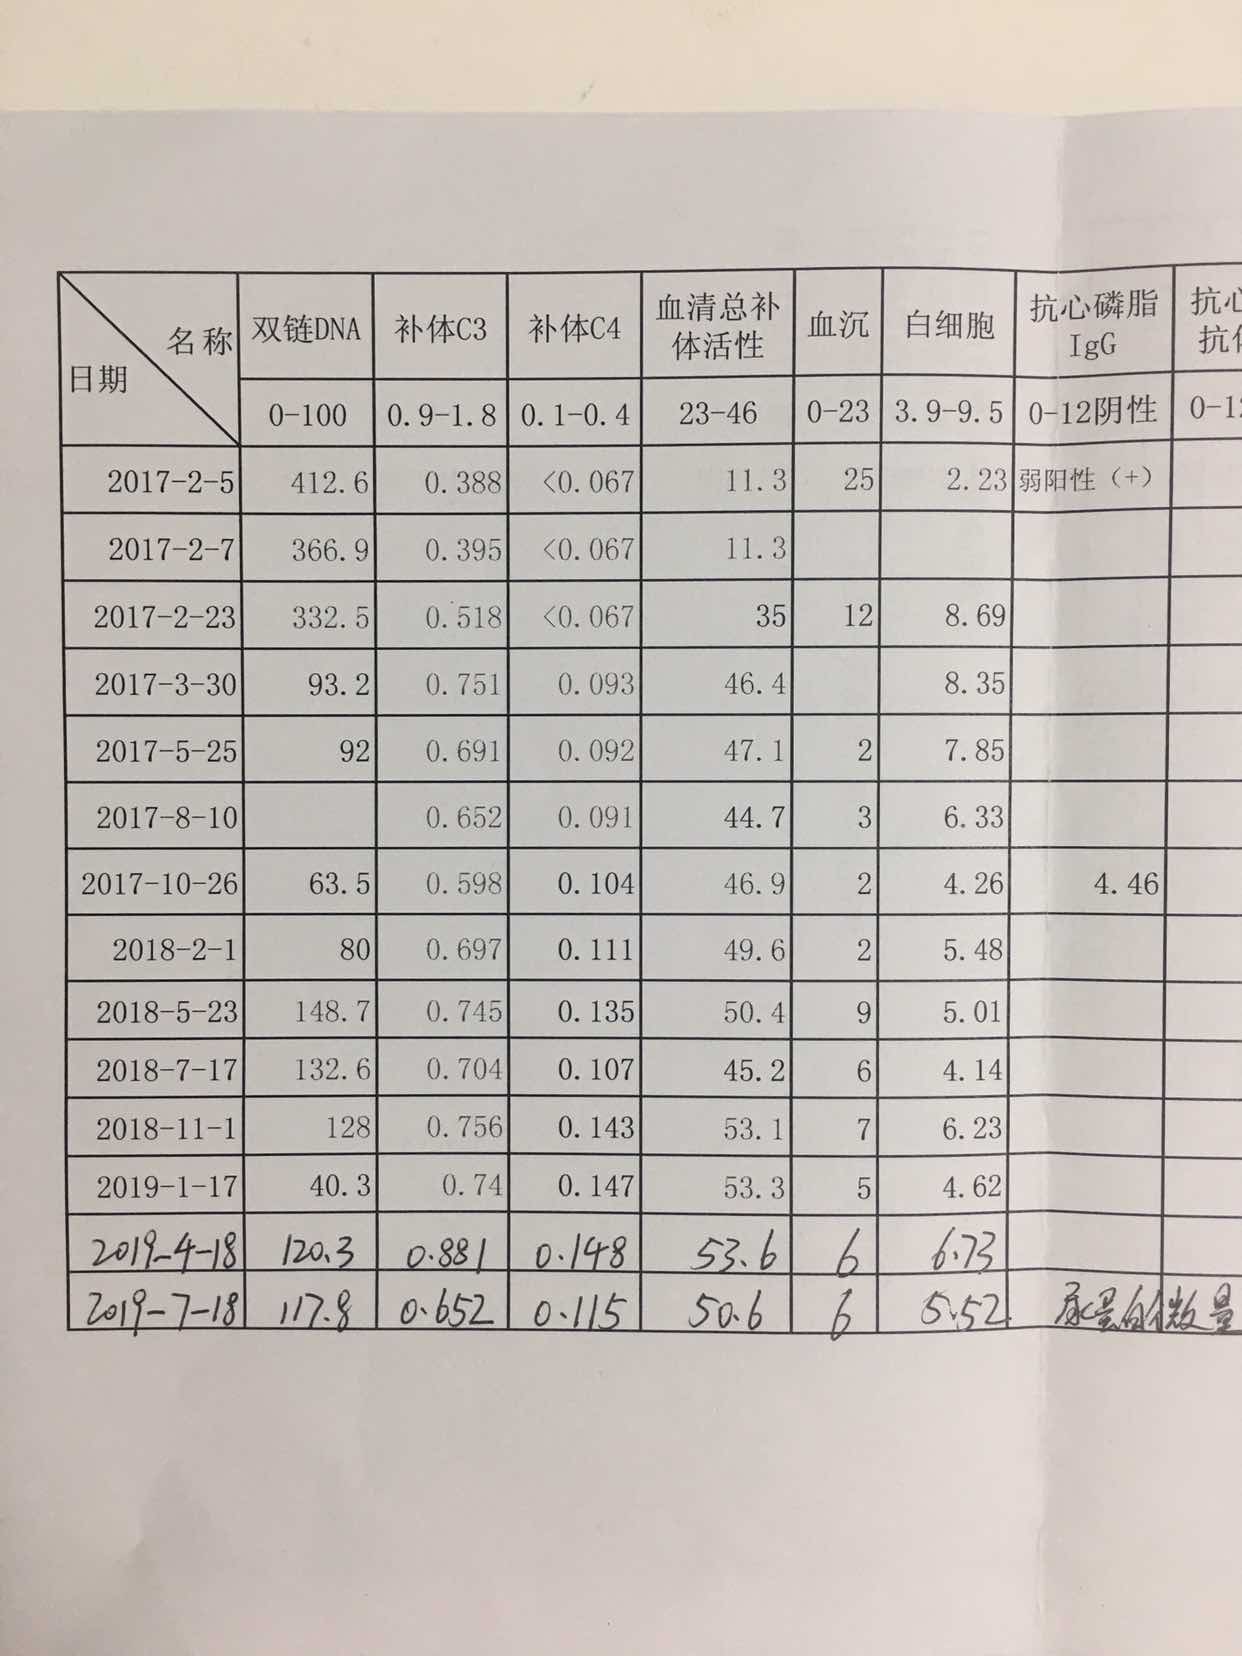 名称 双链DNA 补体C3 补体C4 血清总补体活性 血沉 白细胞 抗心磷脂IgG 抗心
日期 0-100 0.9-1.8 0.1-0.4 23-46 0-23 3.9-9.5 0-12阴性
2017-2-5 412.6 0.388 <0.067 11.3 25 2.23 弱阳性（+）
2017-2-7 366.9 0.395 <0.067 11.3
2017-2-23 332.5 0.518 <0.067 35 12 8.69
2017-3-30 93.2 0.751 0.093 46.4 8.35
2017-5-25 92 0.691 0.092 47.1 2 7.85
2017-8-10 0.652 0.091 44.7 3 6.33
2017-10-26 63.5 0.598 0.104 46.9 2 4.26 4.46
2018-2-1 80 0.697 0.111 49.6 2 5.48
2018-5-23 148.7 0.745 0.135 50.4 9 5.01
2018-7-17 132.6 0.704 0.107 45.2 6 4.14
2018-11-1 128 0.756 0.143 53.1 7 6.23
2019-1-17 40.3 0.74 0.147 53.3 5 4.62
2019-4-18 120.3 0.881 0.148 53.6 6 6.73
2019-7-18 117.8 0.652 0.115 50.6 6 5.52 尿蛋白微量